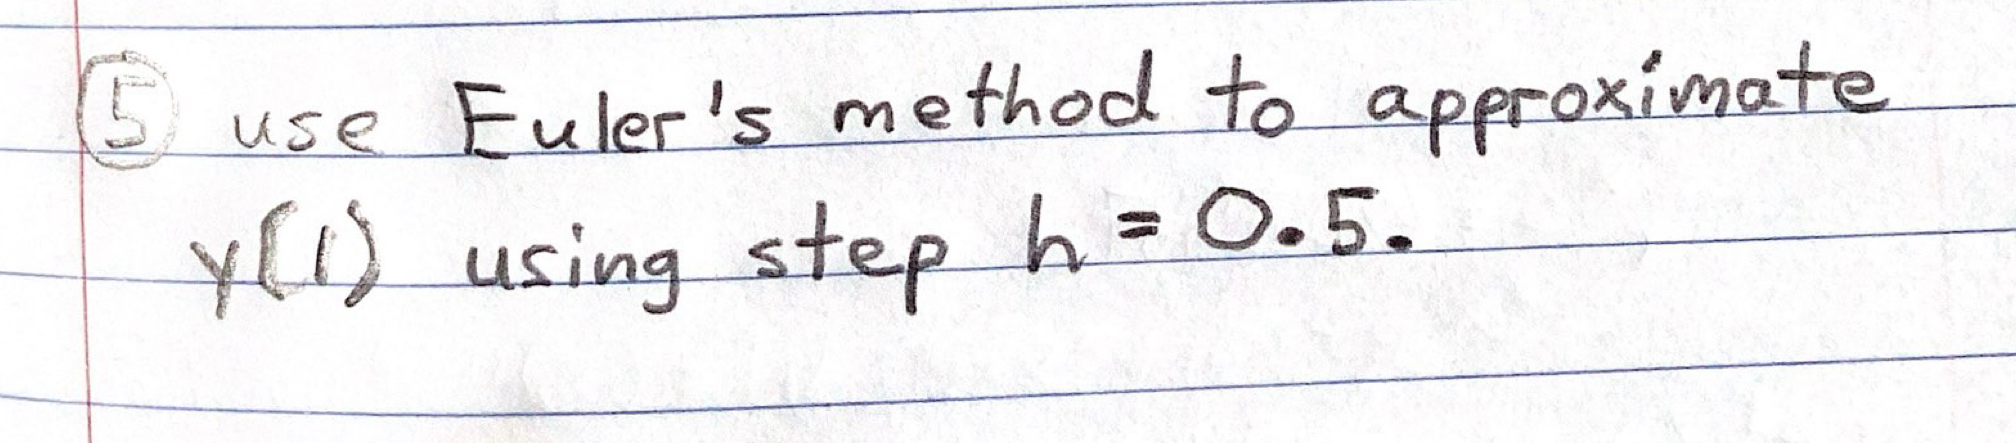 ⑤ use Euler's method to approximate
y(1) using step h = 0.5.